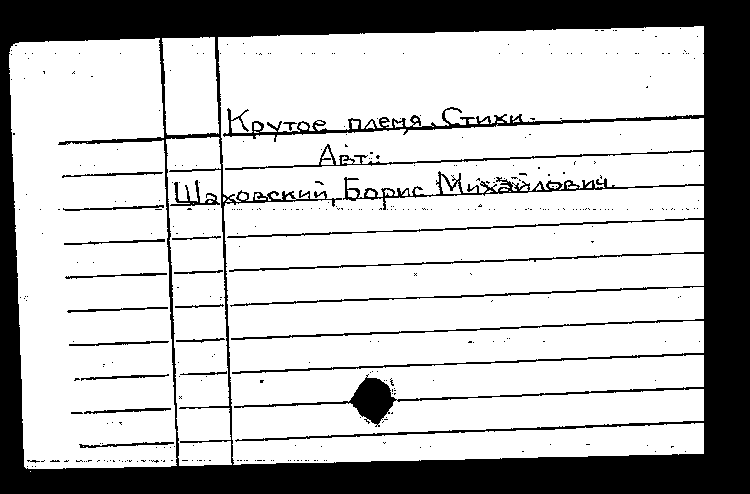 Крутое племя. Стихи.
Авт.:
Шаховский, Борис Михайлович.